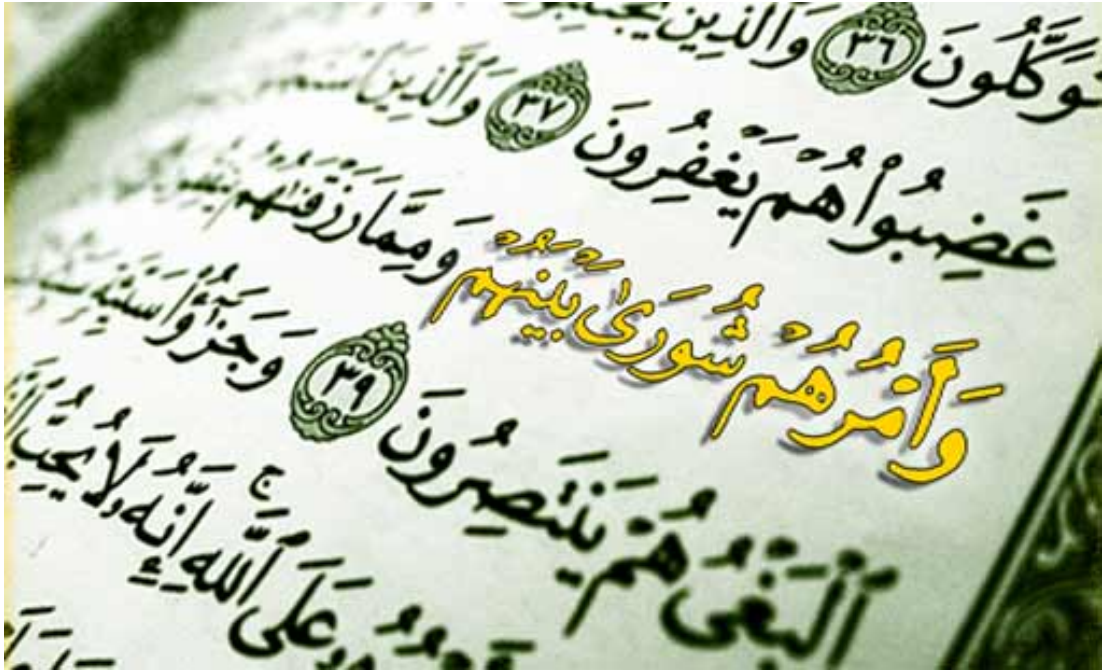 يَتَوَكَّلُونَ ٣٦ وَٱلَّذِينَ يَجْتَنِبُونَ
غَضِبُوا۟ هُمْ يَغْفِرُونَ ٣٧ وَٱلَّذِينَ
وَأَمْرُهُمْ شُورَىٰ بَيْنَهُمْ وَمِمَّا رَزَقْنَٰهُمْ
ٱلْبَغْىُ هُمْ يَنتَصِرُونَ ٣٩ وَجَزَٰٓؤُا۟ سَيِّئَةٍ
عَلَى ٱللَّهِ ۚ إِنَّهُۥ لَا يُحِبُّ